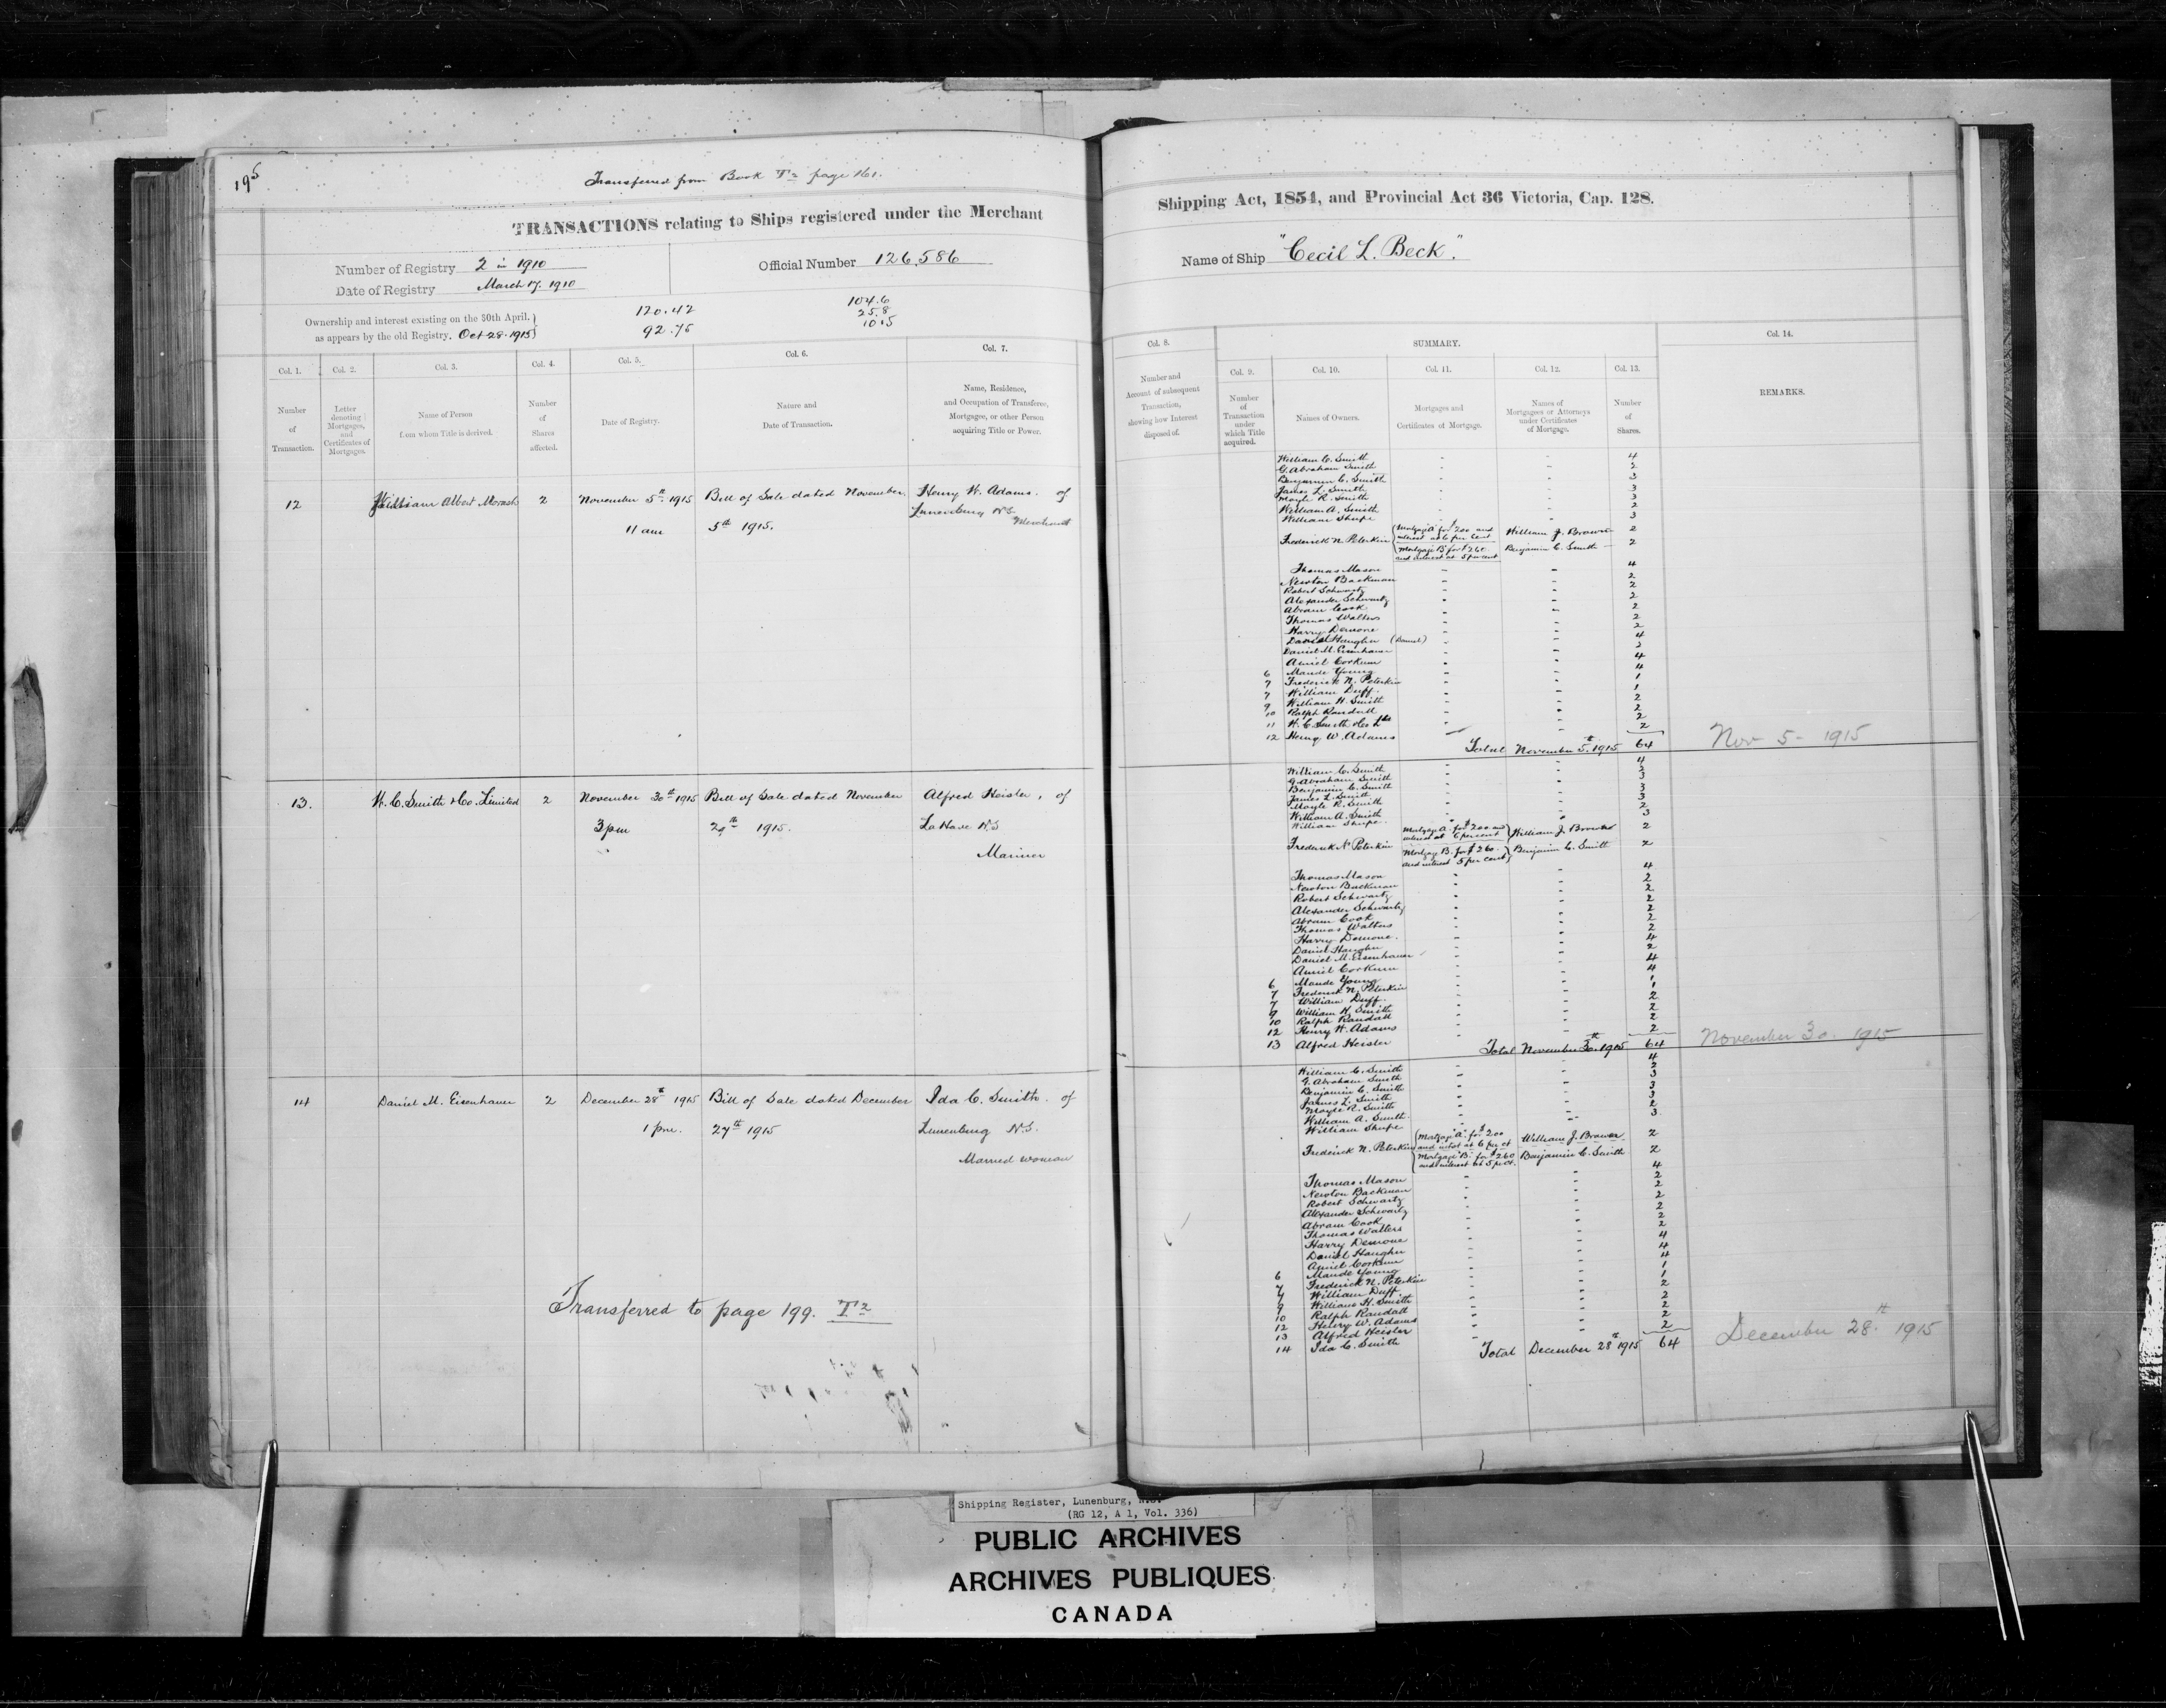 195
Transferred from Book T2 page 161.
TRANSACTIONS relating to Ships registered under the Merchant
Number of Registry 2 in 1910
Official Number 126,586
Date of Registry March 17. 1910
Ownership and interest existing on the 30th April.
as appears by the old Registry. Oct 28. 1915
120.42
92.75
104.6
25.8
10.5
Col. 1. Col. 2. Col. 3. Col. 4. Col. 5. Col. 6. Col. 7.
Number of Transaction.
Letter denoting Mortgages, and Certificates of Mortgages.
Name of Person from whom Title is derived.
Number of Shares affected.
Date of Registry.
Nature and Date of Transaction.
Name, Residence, and Occupation of Transferee, Mortgagee, or other Person acquiring Title or Power.
12 William Albert Morash 2 November 5th 1915 Bill of Sale dated November Henry W. Adams. of
11 am 5th 1915. Lunenburg N.S.
Merchant
13. W. C. Smith & Co. Limited 2 November 30th 1915 Bill of Sale dated November Alfred Heisler, of
3 pm 29th 1915. La Have N.S
Mariner
14 Daniel M. Eisenhauer 2 December 28th 1915 Bill of Sale dated December Ida C. Smith. of
1 pm. 27th 1915 Lunenburg N.S.
Married woman
Transferred to page 199. T2
Shipping Act, 1854, and Provincial Act 36 Victoria, Cap. 128.
Name of Ship "Cecil L. Beck".
Col. 8. SUMMARY. Col. 14.
Col. 9. Col. 10. Col. 11. Col. 12. Col. 13.
Number and Account of subsequent Transaction, shewing how Interest disposed of.
Number of Transaction under which Title acquired.
Names of Owners.
Mortgages and Certificates of Mortgage.
Names of Mortgagees or Attorneys under Certificates of Mortgage.
Number of Shares.
REMARKS.
William C. Smith - - 4
G. Abraham Smith - - 2
Benjamin C. Smith - - 3
James L. Smith - - 3
Moyle R. Smith - - 3
William A. Smith - - 2
William Shupe - - 3
Frederick N. Peterkin Mortgage A for $200 and interest at 6 per cent William J. Brown 2
Mortgage B for $260 and interest at 5 per cent Benjamin C. Smith 2
Thomas Mason - - 4
Newton Backman - - 2
Robert Schwartz - - 2
Alexander Schwartz - - 2
Abram Cook - - 2
Thomas Walters - - 2
Harry Demone - - 2
Daniel Haughn (Daniel) - - 4
Daniel M. Eisenhauer - - 2
Amiel Corkum - - 4
6 Maude Young - - 4
7 Frederick N. Peterkin - - 1
7 William Duff - - 1
9 William H. Smith - - 2
10 Ralph Randall - - 2
11 W. C. Smith & Co Ltd - - 2
12 Henry W. Adams - - 2
Total November 5th 1915 64 Nov 5 - 1915
William C. Smith - - 4
G. Abraham Smith - - 2
Benjamin C. Smith - - 3
James L. Smith - - 3
Moyle R. Smith - - 3
William A. Smith - - 2
William Shupe - - 3
Frederick N. Peterkin Mortgage A. for $200 and interest at 6 per cent William J. Brown 2
Mortgage B. for $260. and interest 5 per cent Benjamin C. Smith 2
Thomas Mason - - 4
Newton Backman - - 2
Robert Schwartz - - 2
Alexander Schwartz - - 2
Abram Cook - - 2
Thomas Walters - - 2
Harry Demone. - - 2
Daniel Haughn - - 4
Daniel M. Eisenhauer - - 2
Amiel Corkum - - 4
6 Maude Young - - 4
7 Frederick N. Peterkin - - 1
7 William Duff. - - 1
9 William H. Smith - - 2
10 Ralph Randall - - 2
12 Henry W. Adams - - 2
13 Alfred Heisler - - 2
Total November 30th 1915 64 November 30. 1915
William C. Smith - - 4
G. Abraham Smith - - 2
Benjamin C. Smith - - 3
James L. Smith - - 3
Moyle R. Smith - - 3
William A. Smith - - 2
William Shupe - - 3
Frederick N. Peterkin Mortgage "A". for $200 and intst at 6 per ct William J. Brown 2
Mortgage "B". for $260 and interest at 5 p ct. Benjamin C. Smith 2
Thomas Mason - - 4
Newton Backman - - 2
Robert Schwartz - - 2
Alexander Schwartz - - 2
Abram Cook - - 2
Thomas Walters - - 2
Harry Demone - - 2
Daniel Haughn - - 4
Amiel Corkum - - 4
6 Maude Young - - 4
7 Frederick N. Peterkin - - 1
7 William Duff - - 1
9 William H. Smith - - 2
10 Ralph Randall - - 2
12 Henry W. Adams - - 2
13 Alfred Heisler - - 2
14 Ida C. Smith - - 2
Total December 28th 1915 64 December 28th. 1915
Shipping Register, Lunenburg, N.S.
(RG 12, A 1, Vol. 336)
PUBLIC ARCHIVES
ARCHIVES PUBLIQUES
CANADA